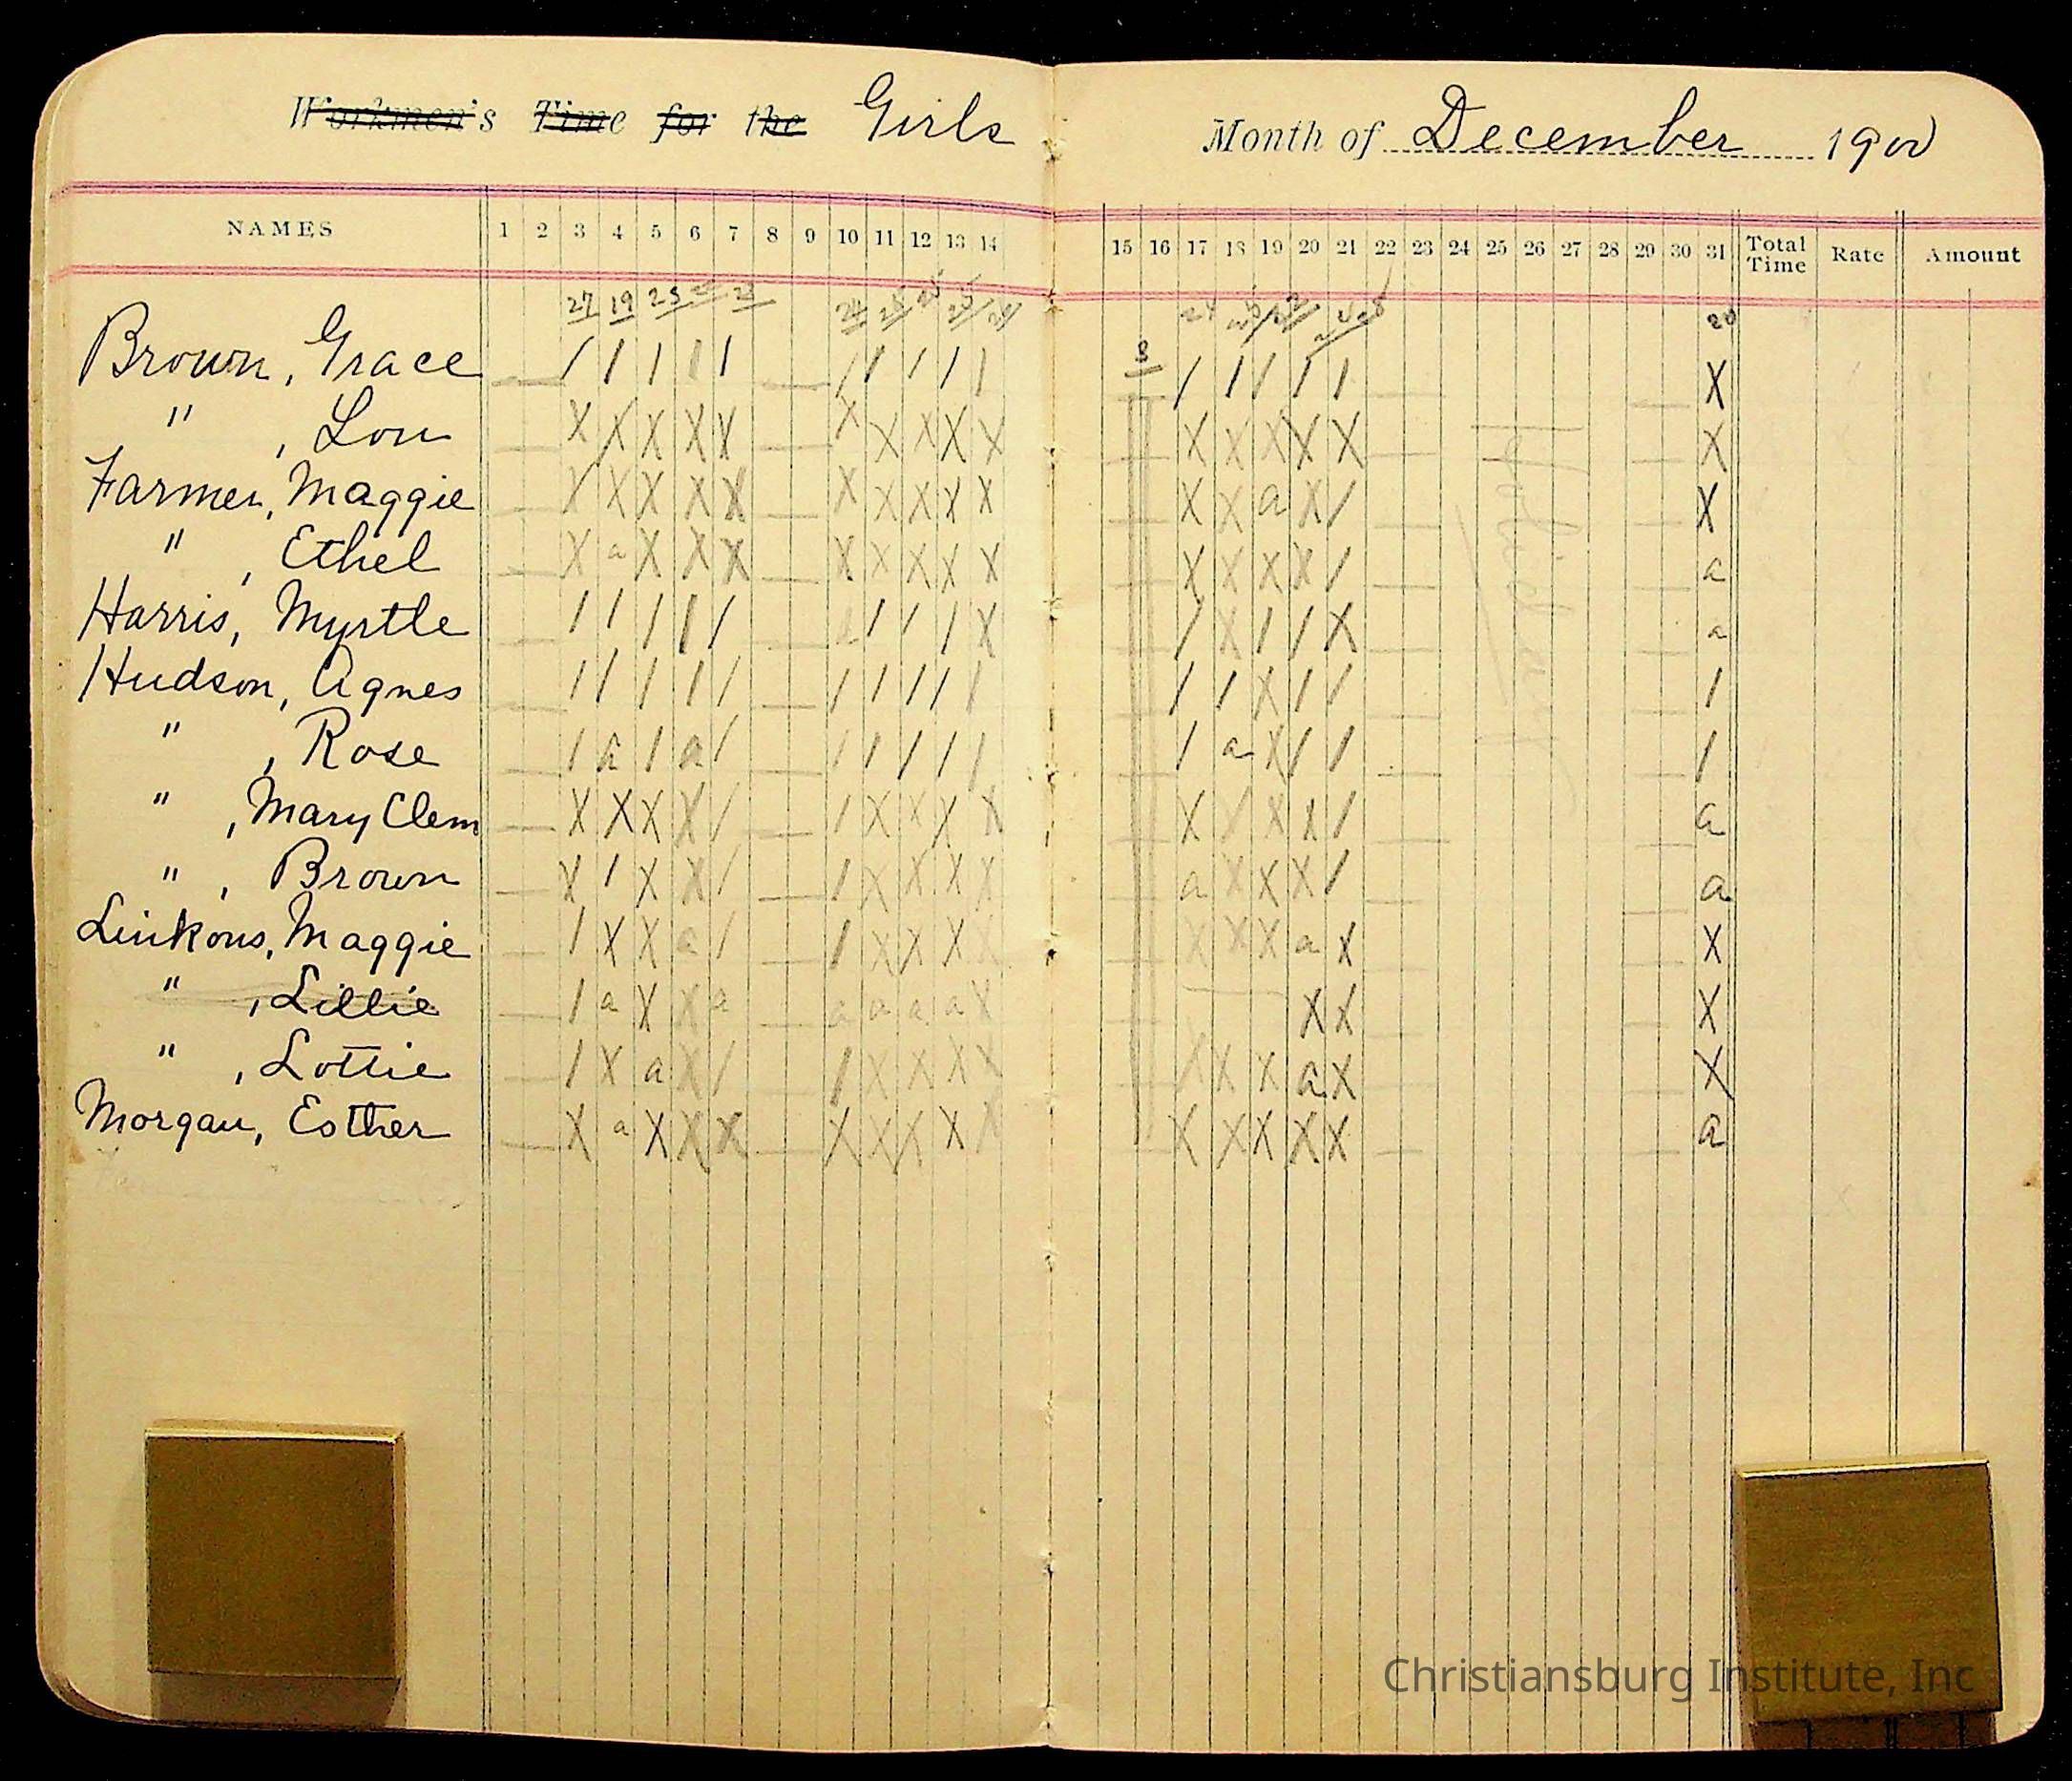 Workmen's Time for the Girls
Month of December 1900
NAMES 1 2 3 4 5 6 7 8 9 10 11 12 13 14 15 16 17 18 19 20 21 22 23 24 25 26 27 28 29 30 31 Total Time Rate Amount
27 19 23
Brown, Grace / / / / / / / / / / / / / / / X
" , Lou X X X X X X X X X X X X X X X X
Farmer, Maggie / X X X X X X X X X X X a X / X
" , Ethel X a X X X X X X X X X X X X / a
Harris, Myrtle / / / / / / / / X / X / / X a
Hudson, Agnes / / / / / / / / / / / / X / / /
" , Rose / a / a / / / / / / / a X / / /
" , Mary Clem X X X X / / X X X X X / X X / a
" , Brown X / X X / / X X X X a X X X / a
Linkous, Maggie / X X a / / X X X X X X X a X X
" , Lillie / a X X a a a a a X X X X
" , Lottie / X a X / / X X X X X X X a X X
Morgan, Esther X a X X X X X X X X X X X X X a
Christiansburg Institute, Inc